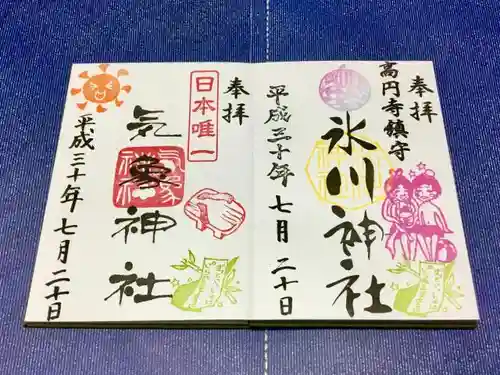 奉拝
高円寺鎮守
氷川神社
平成三十年 七月 二十日
奉拝
日本唯一
気象神社
平成三十年 七月 二十日